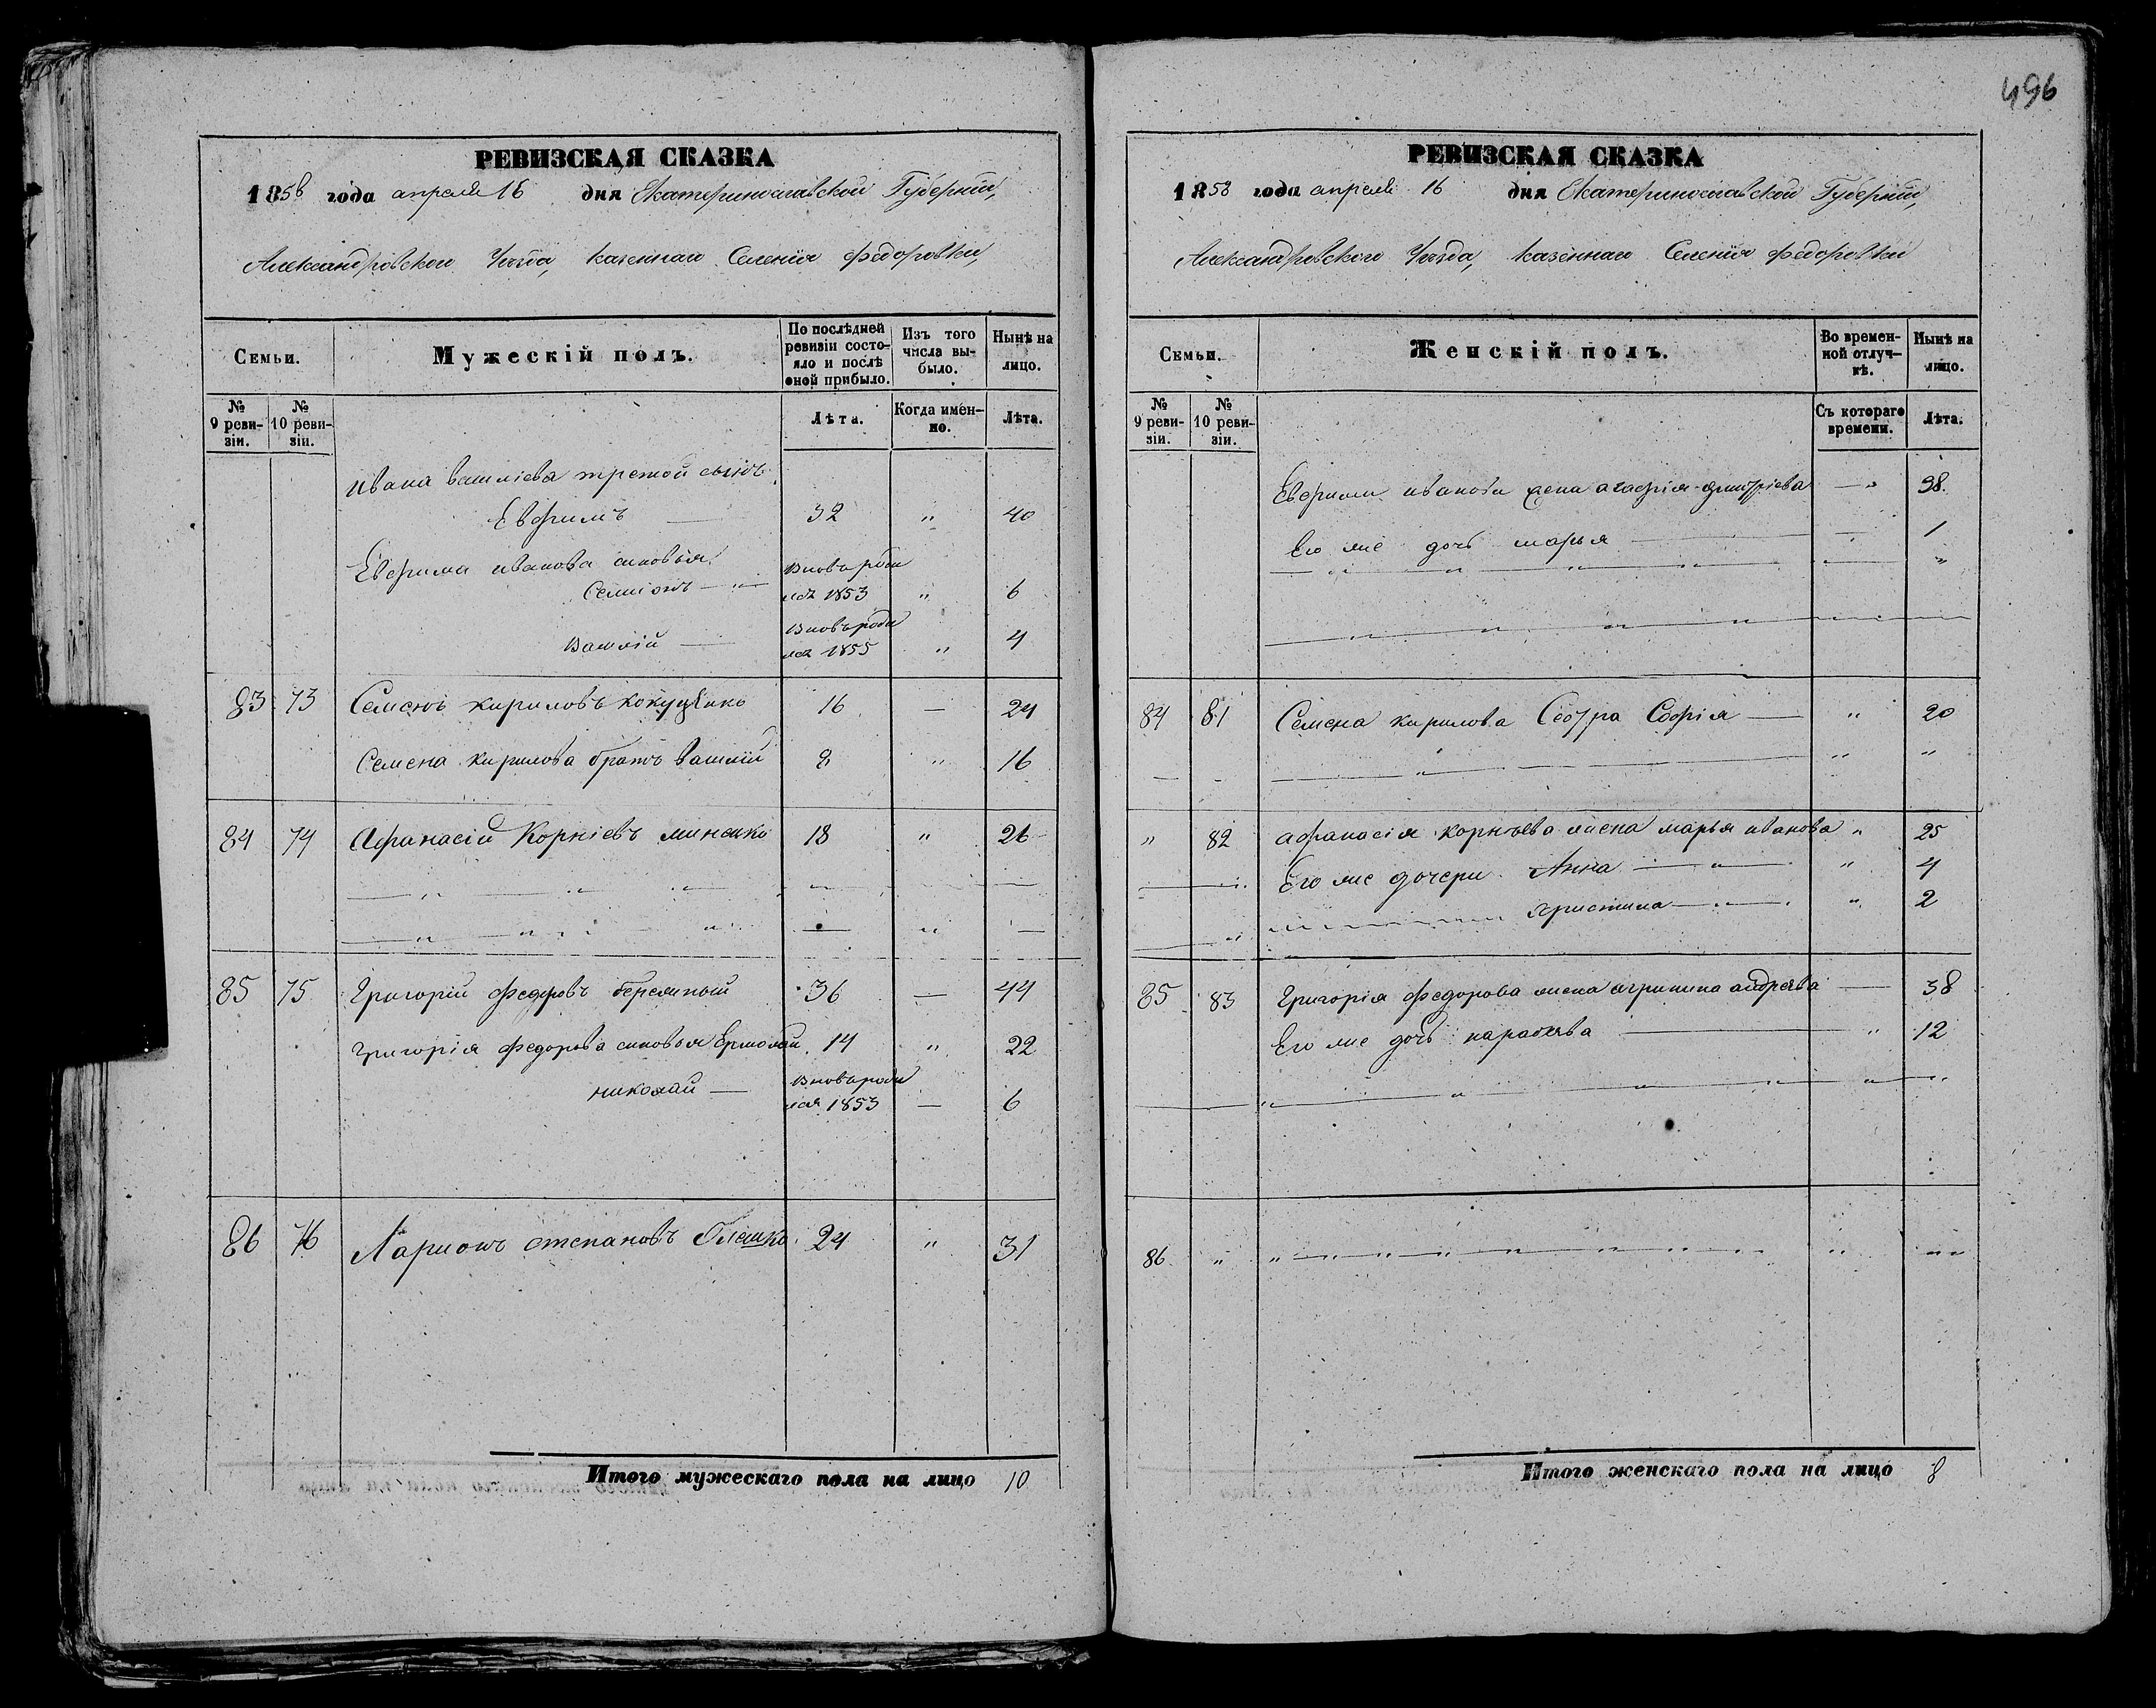 496
РЕВИЗСКАЯ СКАЗКА
1858 года апреля 16 дня Екатеринославской Губернии,
Александровского Уезда, казеннаго Селенія Федоровки,
Семьи.
Мужескій полъ.
По послѣдней ревизіи состояло и послѣ оной прибыло.
Изъ того числа выбыло.
Нынѣ на лицо.
№ 9 ревизіи.
№ 10 ревизіи.
Лѣта.
Когда именно.
Лѣта.
Ивана василіева третой сынъ
Евфимъ — 32 " 40
Евфима иванова сыновья
Вновь роди
Семіонъ — лся 1853 " 6
Вновь роди
Василій — лся 1855 " 4
83 73 Семенъ кириловъ 16 — 24
Семена кирилова братъ василій 8 " 16
84 74 Афанасій Корніевъ миненко 18 " 26
85 75 Григорій федоровъ 36 — 44
Григорія федорова сыновья Ермолай 14 " 22
Вновь роди
николай — лся 1853 — 6
86 76 Ларионъ степановъ 24 " 31
Итого мужескаго пола на лицо 10
РЕВИЗСКАЯ СКАЗКА
1858 года апреля 16 дня Екатеринославской Губерніи,
Александровского Уезда, казеннаго Селенія федоровки
Семьи.
Женскій полъ.
Во временной отлучкѣ.
Нынѣ на лицо.
№ 9 ревизіи.
№ 10 ревизіи.
Съ котораго времени.
Лѣта.
Евфима иванова жена агафія дмитріева — " 38.
Его же дочь марья — 1
84 81 Семена кирилова Сестра Софія — " 20
" 82 афанасія корнѣева жена марья иванова " 25
Его же дочери Анна — " 4
христина — " 2
85 83 Григорія федорова жена агрипина андреева — 38
Его же дочь параскева — " 12
86 "
Итого женскаго пола на лицо 8